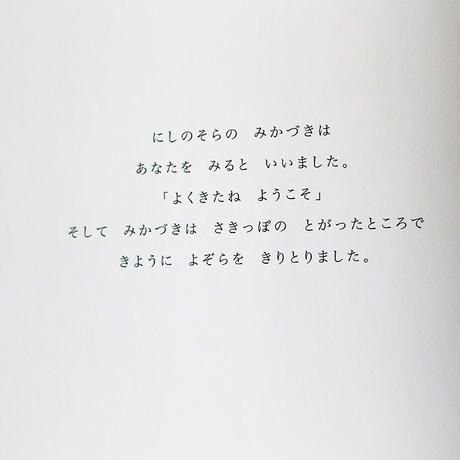 にしのそらの　みかづきは
あなたを　みると　いいました。
「よくきたね　ようこそ」
そして　みかづきは　さきっぽの　とがったところで
きように　よぞらを　きりとりました。